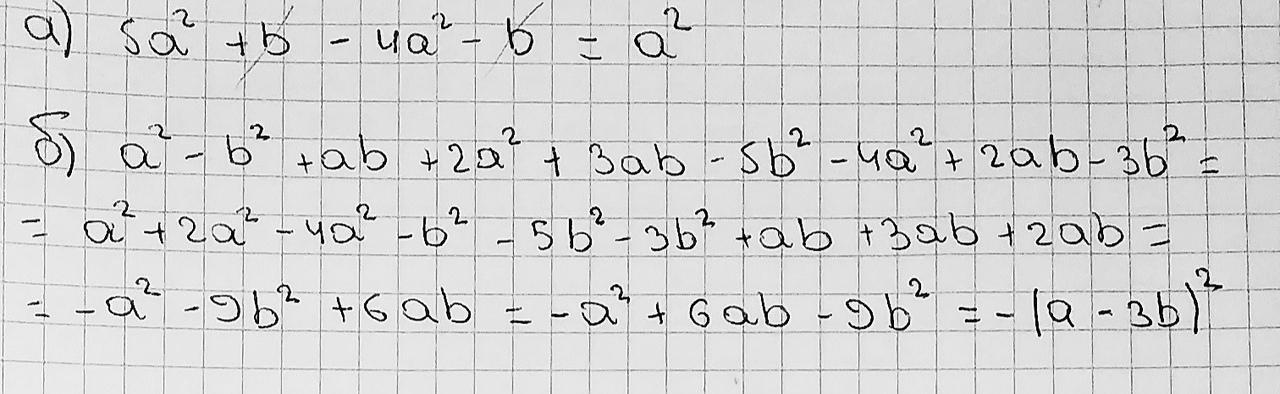 а) 5a² + b - 4a² - b = a²
б) a² - b² + ab + 2a² + 3ab - 5b² - 4a² + 2ab - 3b² =
= a² + 2a² - 4a² - b² - 5b² - 3b² + ab + 3ab + 2ab =
= -a² - 9b² + 6ab = -a² + 6ab - 9b² = -(a - 3b)²